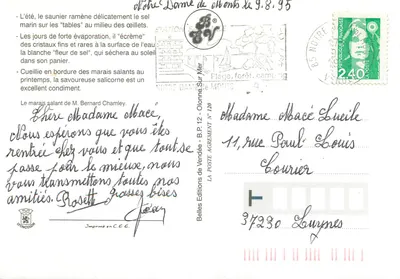 Notre Dame de Monts le 9.8.95
- L'été, le saunier ramène délicatement le sel
marin sur les "tables" au milieu des œillets.
- Les jours de forte évaporation, il "écrème"
des cristaux fins et rares à la surface de l'eau
la blanche "fleur de sel", qui sèchera au soleil
dans son panier.
- Cueillie en bordure des marais salants au
printemps, la savoureuse salicorne est un
excellent condiment.
Le marais salant de M. Bernard Charrier.
Chère Madame Macé,
Nous espérons que vous êtes
rentrée chez vous et que tout se
passe pour le mieux, nous
vous transmettons toutes nos
amitiés. Rosette grosses bises
Imprimé en C.E.E.
Belles Editions de Vendée - B.P. 12 - Olonne Sur Mer
LA POSTE AGREMENT N° 120
2,40
Madame Macé Lucile
11, rue Paul Louis
Courier
37230 Luynes